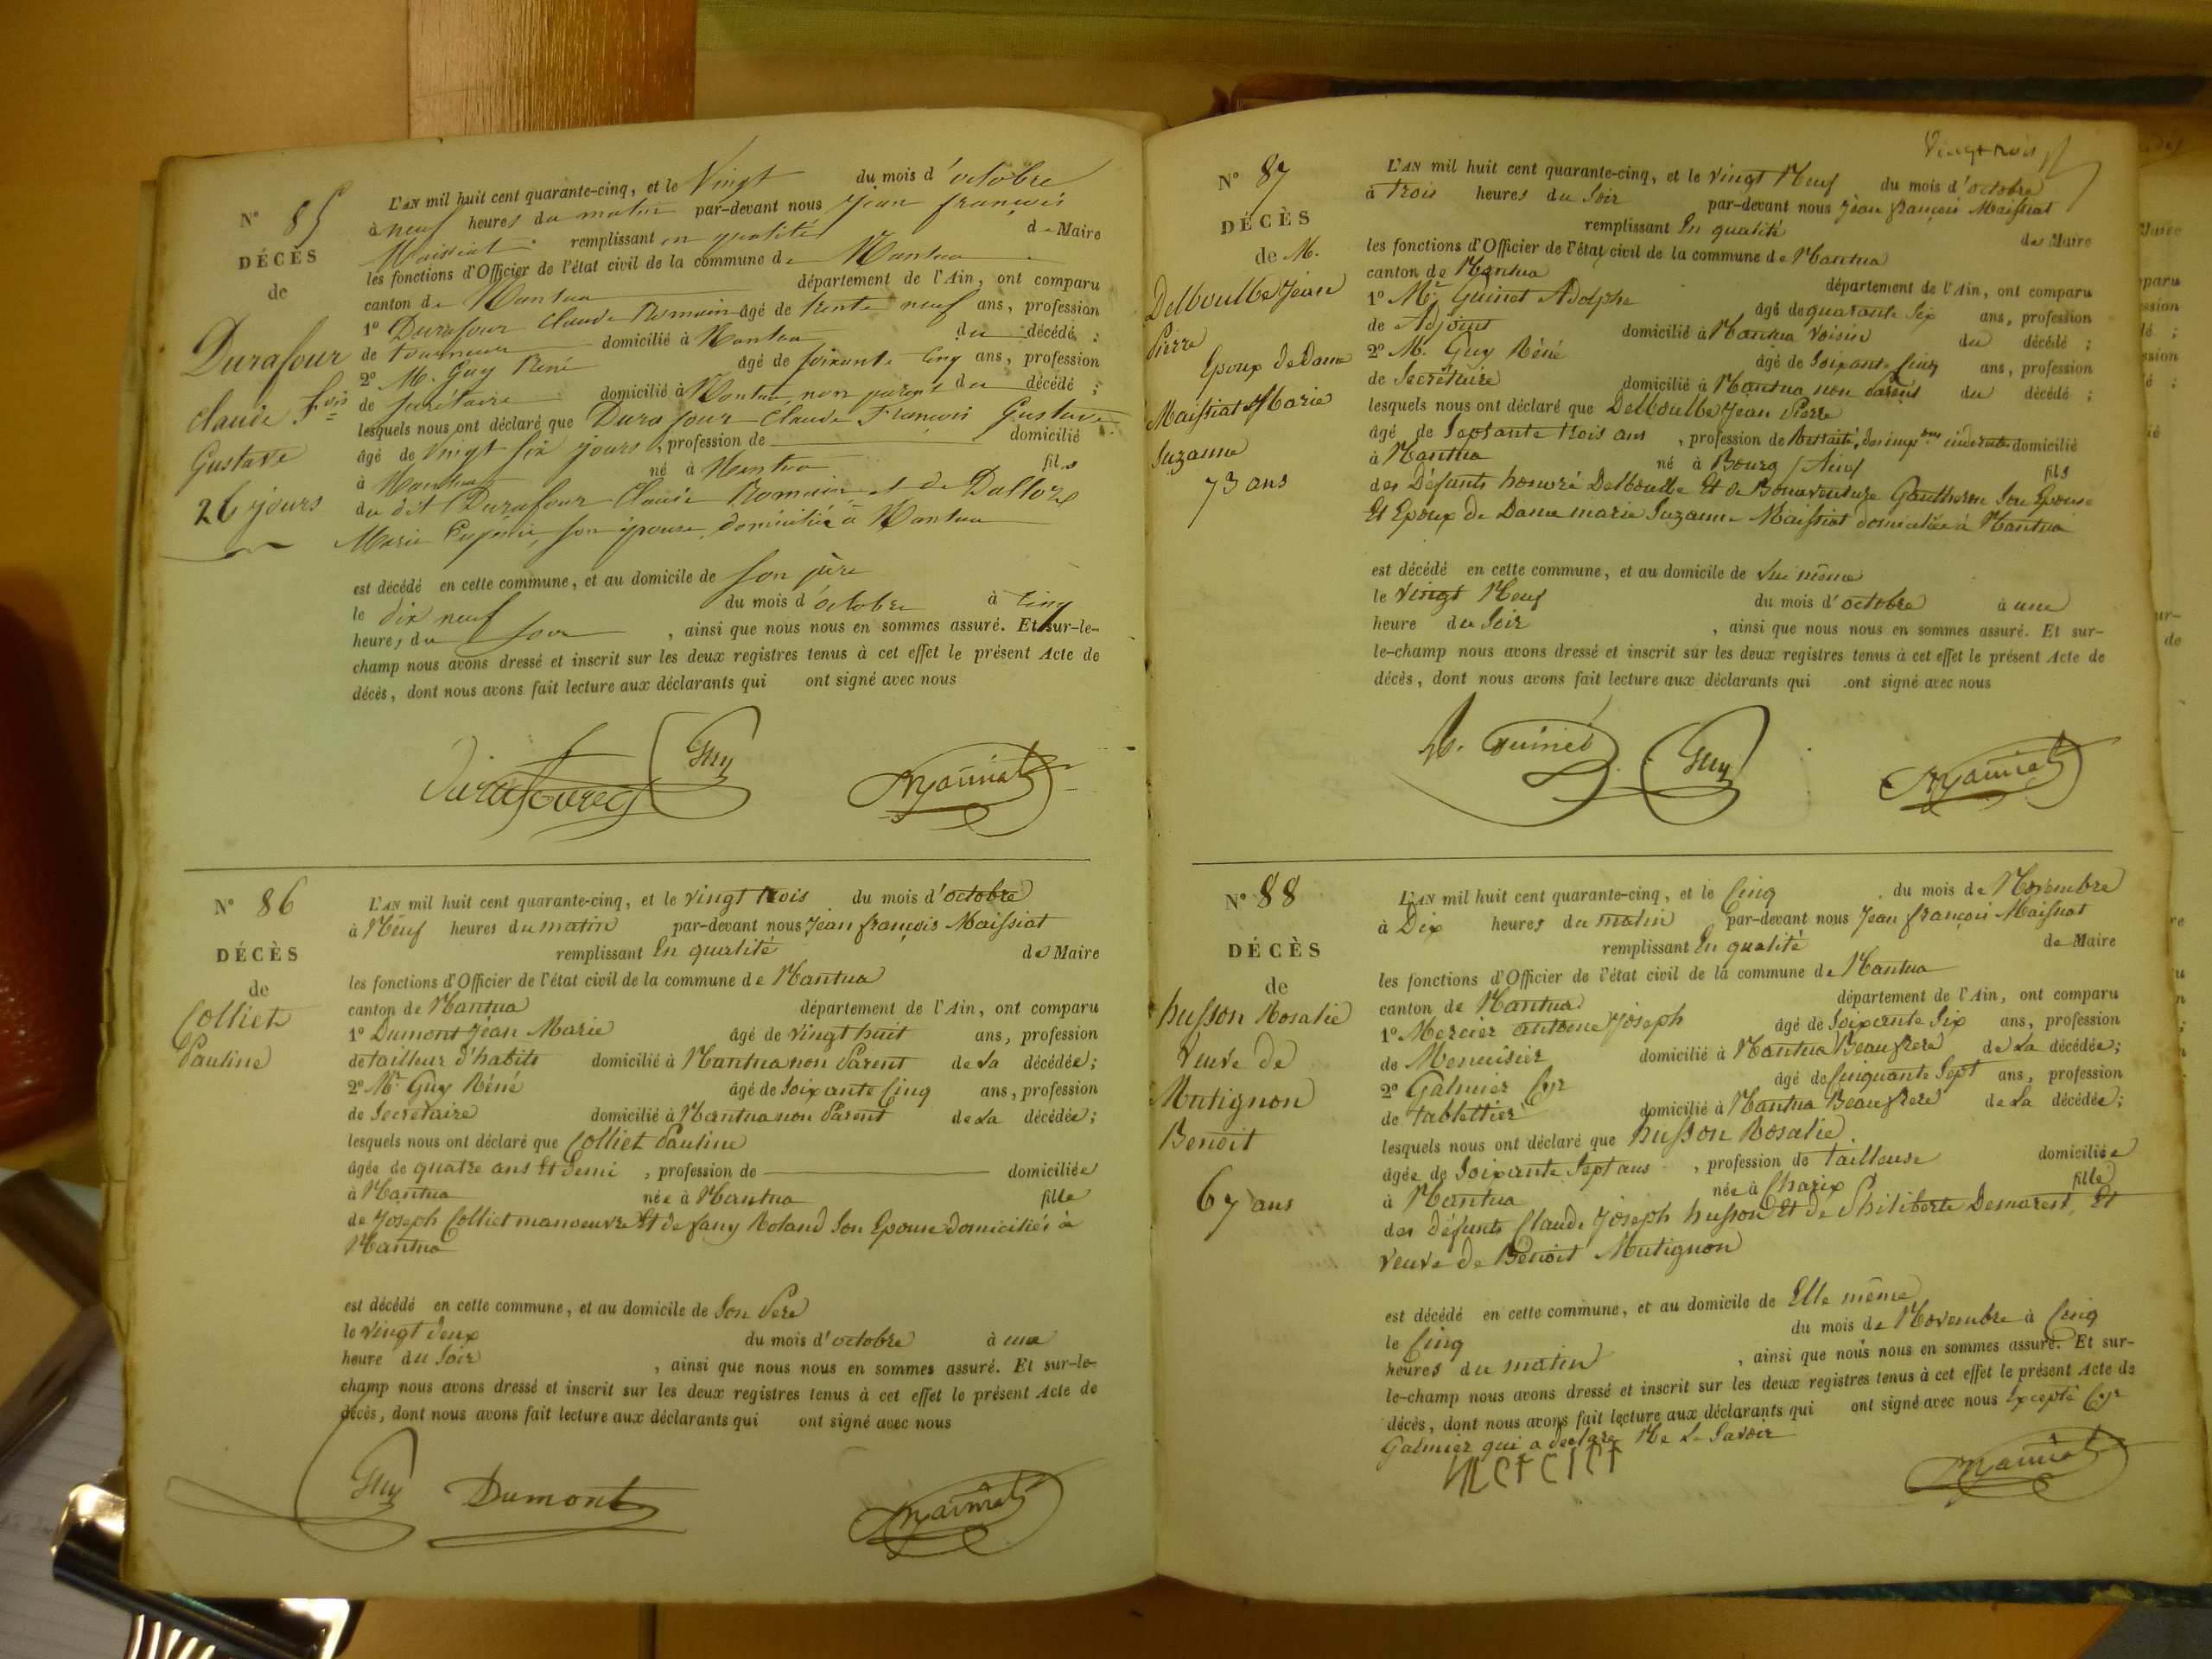 N° 85
DÉCÈS
de
Durafour
Claude F.ois
Gustave
26 jours
L'AN mil huit cent quarante-cinq, et le Vingt du mois d'octobre
à neuf heures du matin par-devant nous Jean françois
Maissiat remplissant en qualité de Maire
les fonctions d'Officier de l'état civil de la commune de Nantua
canton de Nantua département de l'Ain, ont comparu
1° Durafour Claude Romain âgé de trente neuf ans, profession
de tourneur domicilié à Nantua du décédé ;
2° M. Guy René âgé de soixante Cinq ans, profession
de secrétaire domicilié à Nantua, non parent du décédé ;
lesquels nous ont déclaré que Durafour Claude François Gustave
âgé de vingt six jours, profession de domicilié
à Nantua né à Nantua fils
du dit Durafour Claude Romain et de Dalloz
Marie Eugénie, son épouse, domiciliée à Nantua
est décédé en cette commune, et au domicile de son père
le dix neuf du mois d'octobre à Cinq
heures du soir, ainsi que nous nous en sommes assuré. Et sur-le-
champ nous avons dressé et inscrit sur les deux registres tenus à cet effet le présent Acte de
décès, dont nous avons fait lecture aux déclarants qui ont signé avec nous
Guy
Maissiat
N° 86
DÉCÈS
de
Colliet
Pauline
L'AN mil huit cent quarante-cinq, et le vingt trois du mois d'octobre
à Neuf heures du matin par-devant nous Jean françois Maissiat
remplissant En qualité de Maire
les fonctions d'Officier de l'état civil de la commune de Nantua
canton de Nantua département de l'Ain, ont comparu
1° Dumont Jean Marie âgé de vingt huit ans, profession
de tailleur d'habits domicilié à Nantua non Parent de La décédée;
2° Mr Guy Réné âgé de Soixante Cinq ans, profession
de Secrétaire domicilié à Nantua non Parent de La décédée;
lesquels nous ont déclaré que Colliet Pauline
âgée de quatre ans Et Demi, profession de domiciliée
à Nantua née à Nantua fille
de Joseph Colliet manoeuvre Et de fany Roland Son Epouse domiciliés à
Nantua
est décédé en cette commune, et au domicile de Son Père
le vingt deux du mois d'octobre à une
heure du Soir, ainsi que nous nous en sommes assuré. Et sur-le-
champ nous avons dressé et inscrit sur les deux registres tenus à cet effet le présent Acte de
décès, dont nous avons fait lecture aux déclarants qui ont signé avec nous
Guy Dumont Maissiat
Vingt trois
N° 87
DÉCÈS
de M.
Delboulbe Jean
Pierre
Epoux de Dame
Maissiat Marie
Suzanne
73 ans
L'AN mil huit cent quarante-cinq, et le vingt Neuf du mois d'octobre
à trois heures du Soir par-devant nous Jean françois Maissiat
remplissant En qualité de Maire
les fonctions d'Officier de l'état civil de la commune de Nantua
canton de Nantua département de l'Ain, ont comparu
1° Mr Guinet Adolphe âgé de quarante Six ans, profession
de Adjoint domicilié à Nantua voisin du décédé ;
2° M. Guy Réné âgé de Soixante Cinq ans, profession
de Secrétaire domicilié à Nantua non Parent du décédé ;
lesquels nous ont déclaré que Delboulbe Jean Pierre
âgé de Septante trois ans, profession de Retraité, domicilié
à Nantua né à Bourg (Ain) fils
des Défunts honoré Delboulbe Et de Bonaventure Gautheron Son Epouse
Et Epoux de Dame marie Suzanne Maissiat domiciliée à Nantua
est décédé en cette commune, et au domicile de Lui même
le vingt Neuf du mois d'octobre à une
heure du Soir, ainsi que nous nous en sommes assuré. Et sur-
le-champ nous avons dressé et inscrit sur les deux registres tenus à cet effet le présent Acte de
décès, dont nous avons fait lecture aux déclarants qui ont signé avec nous
Guinet Guy Maissiat
N° 88
DÉCÈS
de
husson Rosalie
veuve de
Mutignon
Benoit
67 ans
L'AN mil huit cent quarante-cinq, et le Cinq du mois de Novembre
à Dix heures du matin par-devant nous Jean françois Maissiat
remplissant En qualité de Maire
les fonctions d'Officier de l'état civil de la commune de Nantua
canton de Nantua département de l'Ain, ont comparu
1° Mercier antoine Joseph âgé de Soixante Six ans, profession
de Menuisier domicilié à Nantua Beaufrere de La décédée;
2° Galmier Cyr âgé de Cinquante Sept ans, profession
de tablettier domicilié à Nantua Beaufrere de La décédée;
lesquels nous ont déclaré que husson Rosalie
âgée de Soixante Sept ans, profession de Tailleuse domiciliée
à Nantua née à Charix fille
des défunts Claude Joseph husson Et de Philiberte Demarest, Et
veuve de Benoit Mutignon
est décédé en cette commune, et au domicile de Elle même
le Cinq du mois de Novembre à Cinq
heures du matin, ainsi que nous nous en sommes assuré. Et sur-
le-champ nous avons dressé et inscrit sur les deux registres tenus à cet effet le présent Acte de
décès, dont nous avons fait lecture aux déclarants qui ont signé avec nous Excepté Cyr
Galmier qui a déclaré Ne Le Savoir
Mercier Maissiat